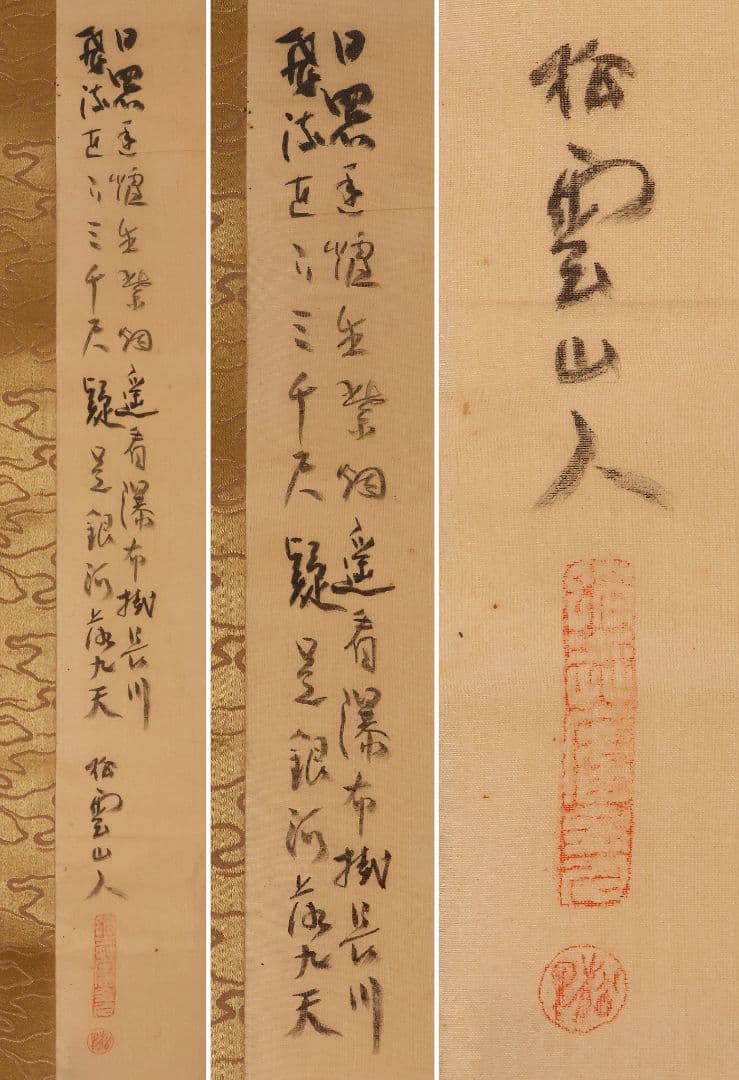 日照香爐生紫烟遥看瀑布掛長川
飛流直下三千尺疑是銀河落九天
梅雲山人
日照香爐生紫烟遥看瀑布掛長川
飛流直下三千尺疑是銀河落九天
梅雲山人